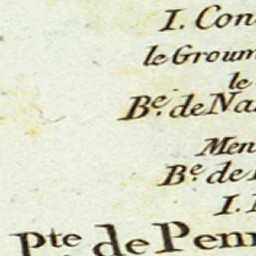 I. Con
le Groum
le
Be. de Na
Men
Be. de
I.
Pte de Pen